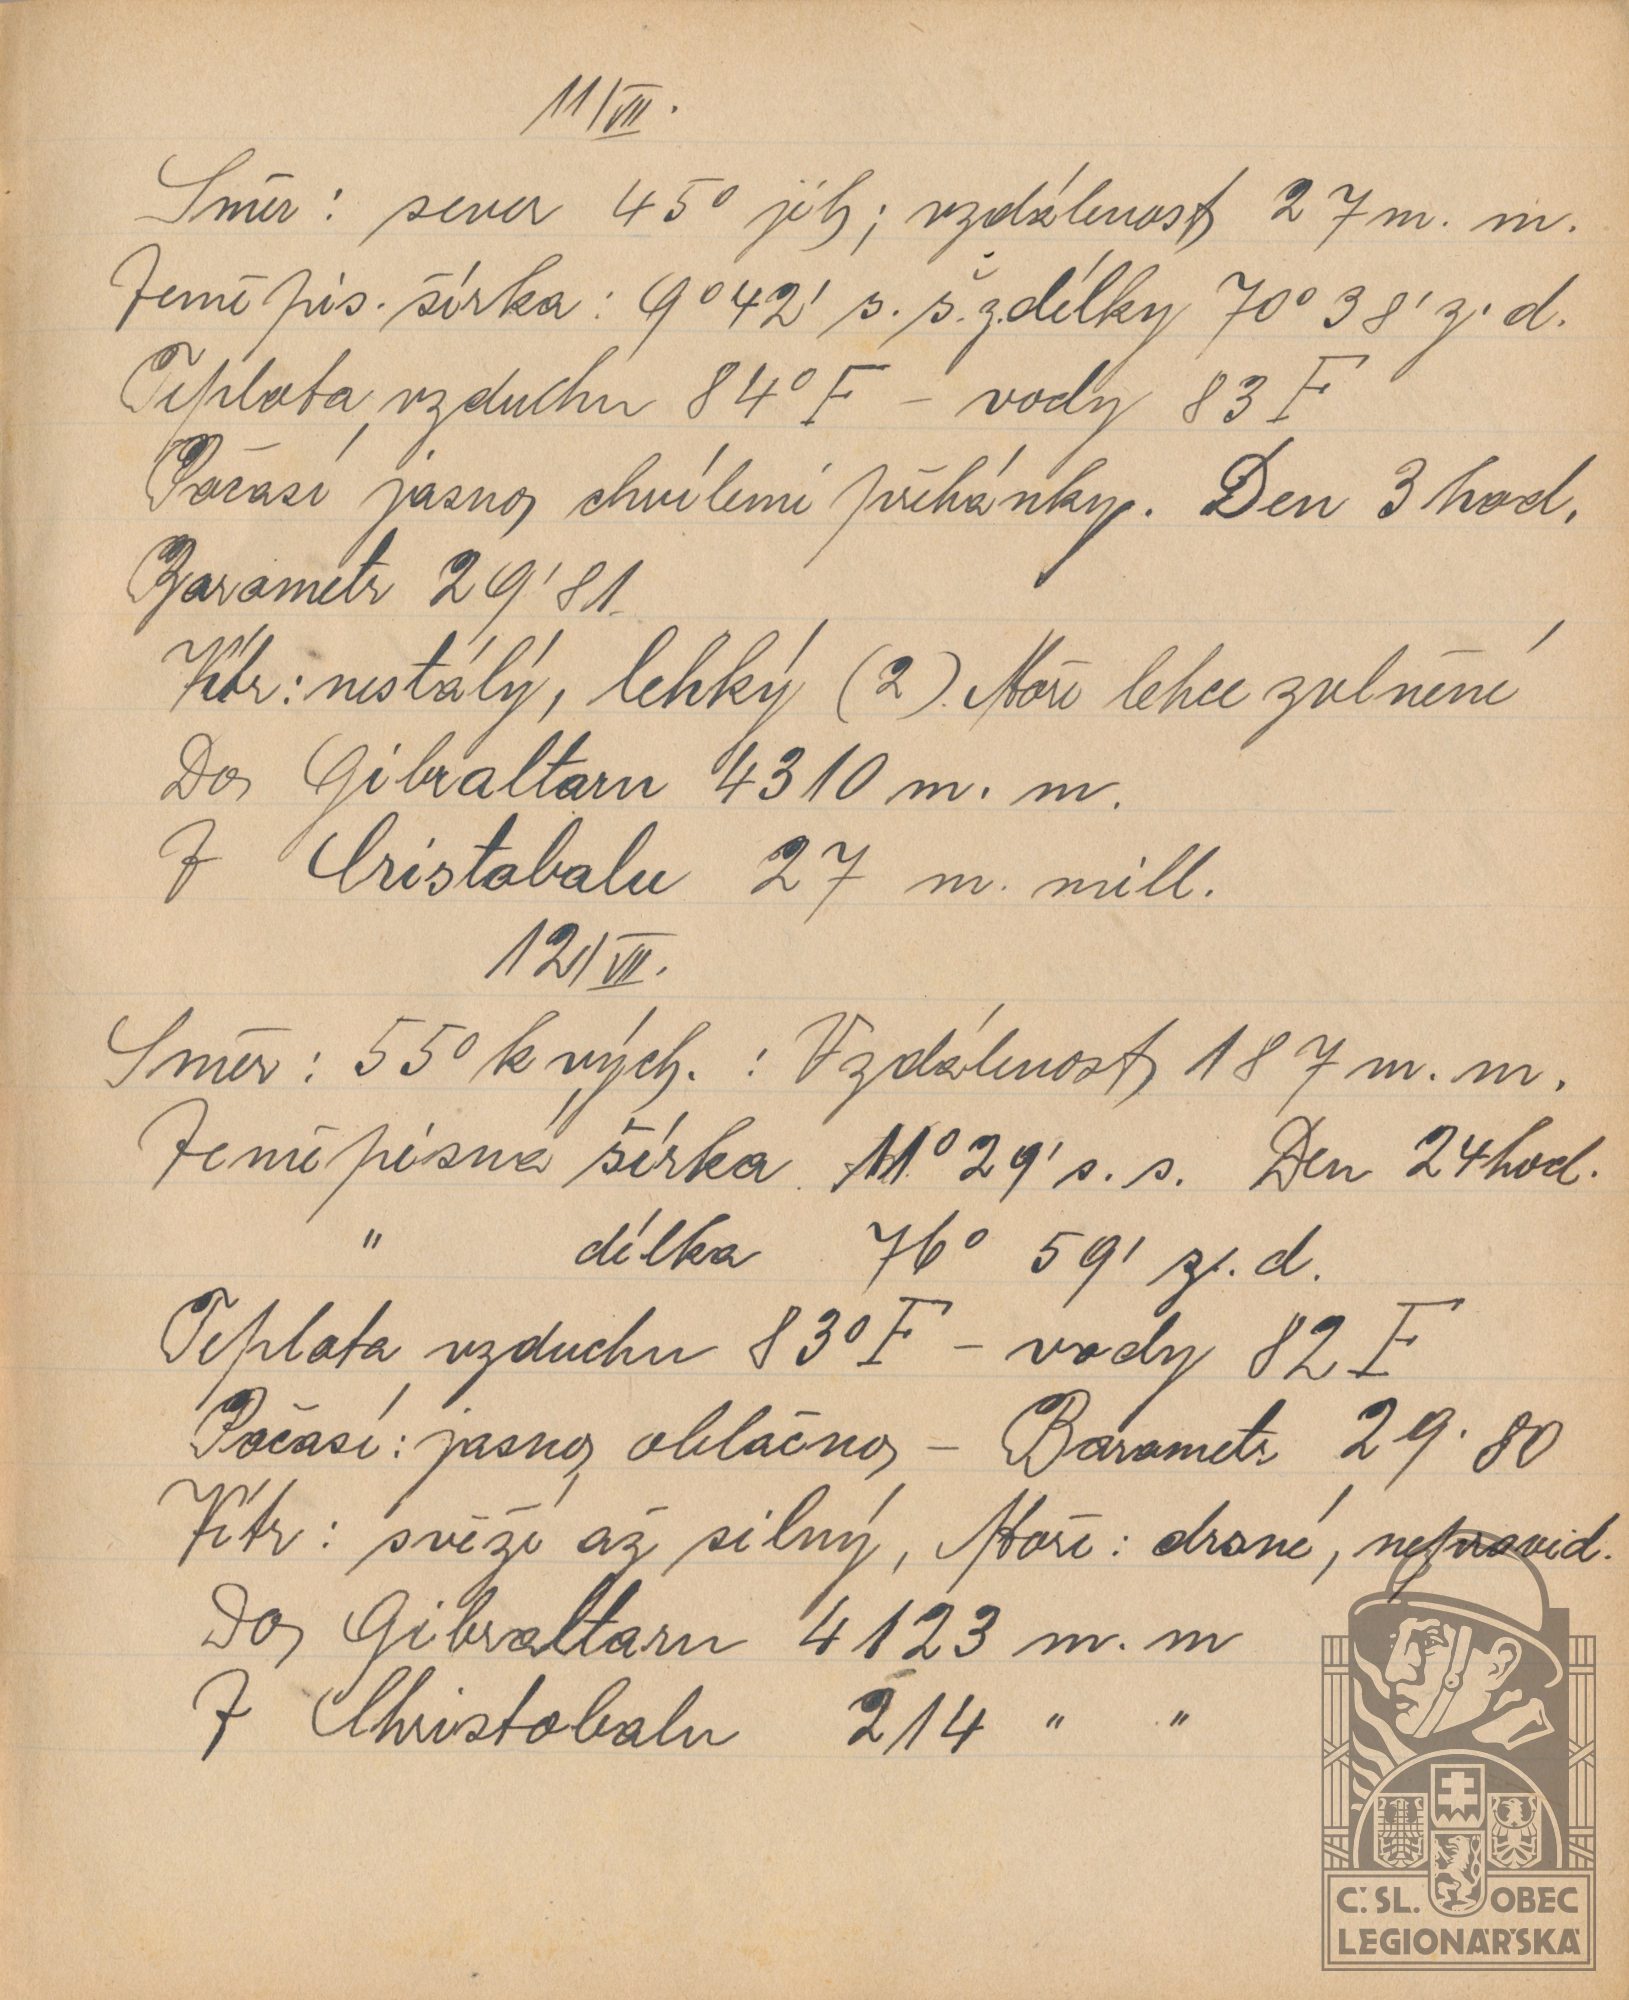 11/VII.
Směr: sever 45° jih; vzdálenost 27 m. m.
Zeměpis. šírka: 9°42' s. š. z. délky 70°38' z. d.
Teplota vzduchu 84° F – vody 83 F
Počasí jasno, chvílemi přehánky. Den 3 hod.
Barometr 29'81
Vítr: nestálý, lehký (2). Moře lehce zvlněné
Do Gibraltaru 4310 m. m.
Z Cristobalu 27 m. mill.
12/VII.
Směr: 55° k vých. : Vzdálenost 187 m. m.
Zeměpisná šírka 11° 29' s. s. Den 24 hod.
" délka 76° 59' z. d.
Teplota vzduchu 83° F – vody 82 F
Počasí: jasno, oblačno – Barometr 29. 80
Vítr: svěží až silný, Moře: drsné, nepravid.
Do Gibraltaru 4123 m. m
Z Christobalu 214 " "
Č. SL. OBEC
LEGIONÁŘSKÁ